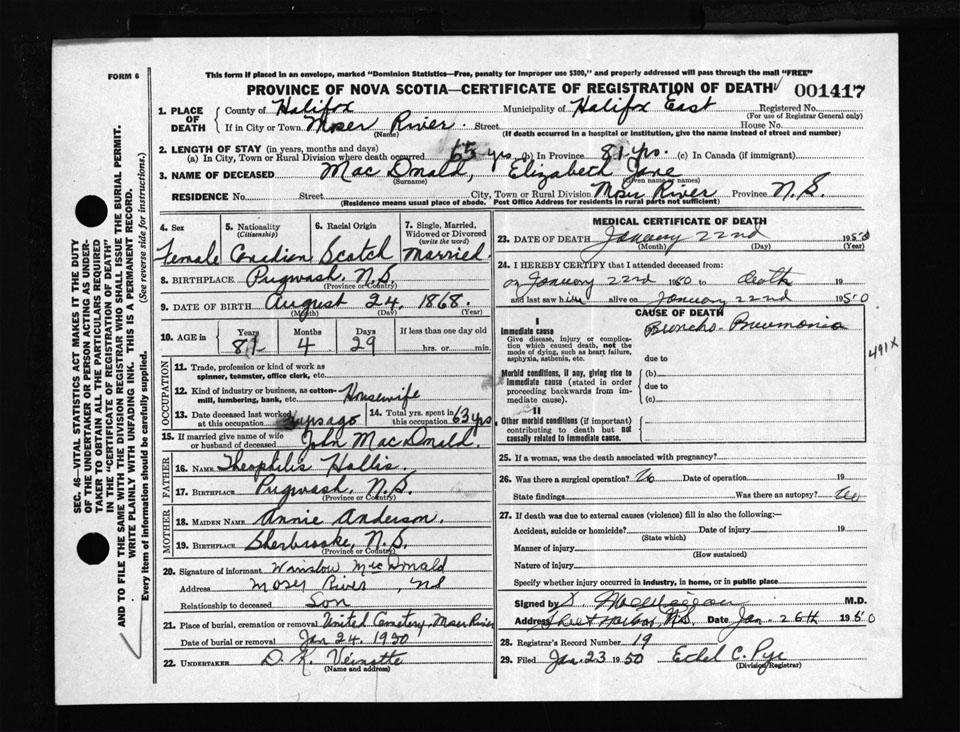 FORM 6
This form if placed in an envelope, marked "Dominion Statistics—Free, penalty for improper use $300," and properly addressed will pass through the mail "FREE"
PROVINCE OF NOVA SCOTIA—CERTIFICATE OF REGISTRATION OF DEATH 001417
1. PLACE OF DEATH
County of Halifax Municipality of Halifax East Registered No.
(For use of Registrar General only)
If in City or Town Moser River. Street House No.
(Name) (If death occurred in a hospital or institution, give the name instead of street and number)
2. LENGTH OF STAY (in years, months and days)
(a) In City, Town or Rural Division where death occurred 65 yrs (b) In Province 81 yrs. (c) In Canada (if immigrant)
3. NAME OF DECEASED Mac Donald, Elizabeth Jane
(Surname) (Given name or names)
RESIDENCE No. Street City, Town or Rural Division Moser River Province N.S.
(Residence means usual place of abode. Post Office Address for residents in rural parts not sufficient)
4. Sex 5. Nationality (Citizenship) 6. Racial Origin 7. Single, Married, Widowed or Divorced (write the word)
Female Canadian Scotch Married
8. BIRTHPLACE Pugwash, N.S.
(Province or Country)
9. DATE OF BIRTH August 24, 1868.
(Month) (Day) (Year)
10. AGE in Years Months Days If less than one day old
81 4 29 hrs. or min.
OCCUPATION
11. Trade, profession or kind of work as spinner, teamster, office clerk, etc.
12. Kind of industry or business, as cotton-mill, lumbering, bank, etc. Housewife
13. Date deceased last worked at this occupation yrs ago 14. Total yrs. spent in this occupation 63 yrs.
15. If married give name of wife or husband of deceased John MacDonald.
FATHER
16. NAME Theophilis Hollis.
17. BIRTHPLACE Pugwash, N.S.
(Province or Country)
MOTHER
18. MAIDEN NAME Annie Anderson.
19. BIRTHPLACE Sherbrooke, N.S.
(Province or Country)
20. Signature of informant Winslow MacDonald
Address Moser River, NS
Relationship to deceased Son
21. Place of burial, cremation or removal United Cemetery, Moser River
Date of burial or removal Jan 24. 1950
22. UNDERTAKER D. K. Veinotte
(Name and address)
MEDICAL CERTIFICATE OF DEATH
23. DATE OF DEATH January 22nd 1950
(Month) (Day) (Year)
24. I HEREBY CERTIFY that I attended deceased from:
on January 22nd 1950 to death 19
and last saw h alive on January 22nd 1950
CAUSE OF DEATH
I
Immediate cause Broncho-Pneumonia
Give disease, injury or complication which caused death, not the mode of dying, such as heart failure, asphyxia, asthenia, etc.
due to
491X
Morbid conditions, if any, giving rise to immediate cause (stated in order proceeding backwards from immediate cause).
(b)
due to
(c)
II
Other morbid conditions (if important) contributing to death but not causally related to immediate cause.
25. If a woman, was the death associated with pregnancy?
26. Was there a surgical operation? No Date of operation 19
State findings Was there an autopsy?
27. If death was due to external causes (violence) fill in also the following:—
Accident, suicide or homicide? Date of injury 19
(State which)
Manner of injury
(How sustained)
Nature of injury
Specify whether injury occurred in industry, in home, or in public place
Signed by M.D.
Address Sheet Harbor, N.S. Date Jan. 26th 1950
28. Registrar's Record Number 19
29. Filed Jan. 23 1950 Ethel C. Pye
(Division Registrar)
SEC. 46—VITAL STATISTICS ACT MAKES IT THE DUTY
OF THE UNDERTAKER OR PERSON ACTING AS UNDERTAKER TO OBTAIN ALL THE PARTICULARS REQUIRED
IN THE "CERTIFICATE OF REGISTRATION OF DEATH"
AND TO FILE THE SAME WITH THE DIVISION REGISTRAR WHO SHALL ISSUE THE BURIAL PERMIT.
WRITE PLAINLY WITH UNFADING INK. THIS IS A PERMANENT RECORD.
Every item of information should be carefully supplied. (See reverse side for instructions.)